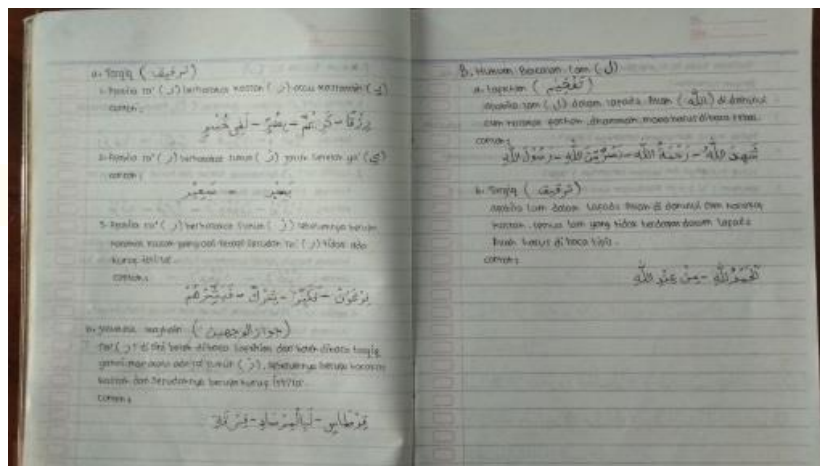 a. Tarqiq ( ترقيق )
1. Apabila ra' ( ر ) berharakat kasrah ( رِ ) atau kasratain ( رٍ )
contoh :
رِزْقًا - كَرِيْمٌ - بِضُرٍّ - لَفِى خُسْرٍ
2. Apabila ra' ( ر ) berharakat sukun ( رْ ) jatuh setelah ya' ( ي )
contoh :
3. Apabila ra' ( ر ) berharakat sukun ( رْ ) sebelumnya berupa
harakat kasrah yang asli tetapi sesudah ra' ( ر ) tidak ada
huruf isti'la'.
contoh :
فِرْعَوْنَ
b. Jawazul wajhain ( جواز الوجهين )
ra' ( ر ) di sini boleh dibaca tafkhim dan boleh dibaca tarqiq
yakni manakala ada ra' sukun ( رْ ), sebelumnya berupa harakat
kasrah dan sesudahnya berupa huruf isti'la'.
contoh :
قِرْطَاسٍ - لَبِالْمِرْصَادِ - فِرْقَةٍ
B. Hukum Bacaan Lam ( ل )
a. Tafkhim ( تفخيم )
apabila lam ( ل ) dalam lafadz Allah ( الله ) di dahului
oleh harakat fathah, dhammah, maka harus dibaca tebal.
contoh :
شَهِدَ اللهُ - رَحْمَةُ اللهِ - نَصْرٌ مِّنَ اللهِ - رَسُوْلُ اللهِ
b. Tarqiq ( ترقيق )
apabila lam dalam lafadz Allah di dahului oleh harakat
kasrah, semua lam yang tidak terdapat dalam lafadz
Allah harus di baca tipis.
contoh :
اَلْحَمْدُ لِلّٰهِ - مِنْ عِنْدِ اللهِ